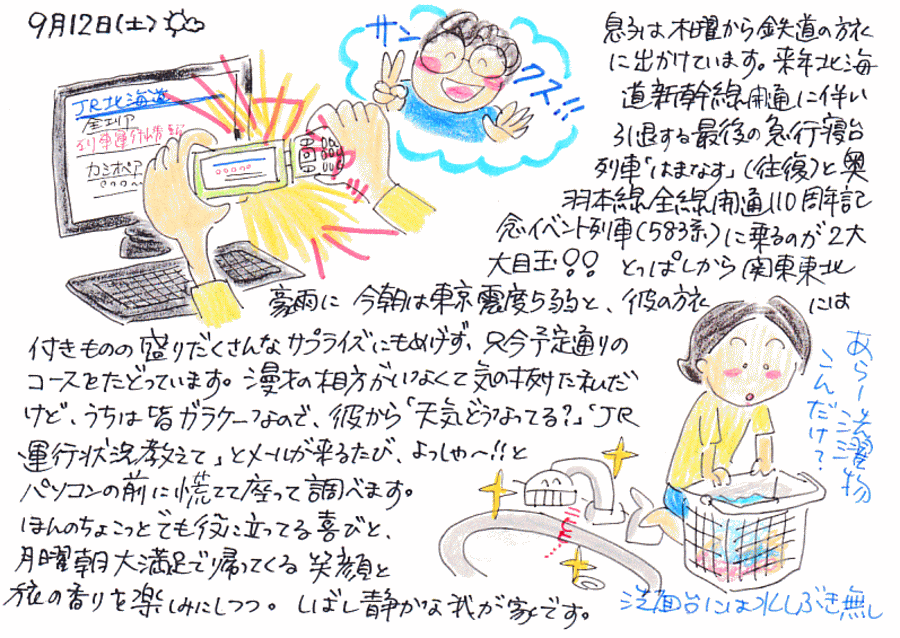 9月12日(土)
サンクス!!
JR北海道
全エリア
列車運行情報
カシオペア
息子は木曜から鉄道の旅
に出かけています。来年北海
道新幹線開通に伴い
引退する最後の急行寝台
列車「はまなす」(往復)と奥
羽本線全線開通110周年記
念イベント列車(583系)に乗るのが2大
大目玉!! とっぱしから関東東北
豪雨に 今朝は東京震度5弱と、彼の旅には
付きものの盛りだくさんなサプライズにもめげず、只今予定通りの
コースをたどっています。漫才の相方がいなくて気の抜けたれんだ
けど、うちは皆ガラケーなので、彼から「天気どうなってる?」「JR
運行状況教えて」とメールが来るたび、よっしゃ〜!!と
パソコンの前に慌てて座って調べます。
ほんのちょこっとでも役に立ってる喜びと、
月曜朝大満足で帰ってくる笑顔と
旅の香りを楽しみにしつつ。しばし静かな我が家です。
あらー洗濯物
こんだけ?
洗面台には水しぶき無し